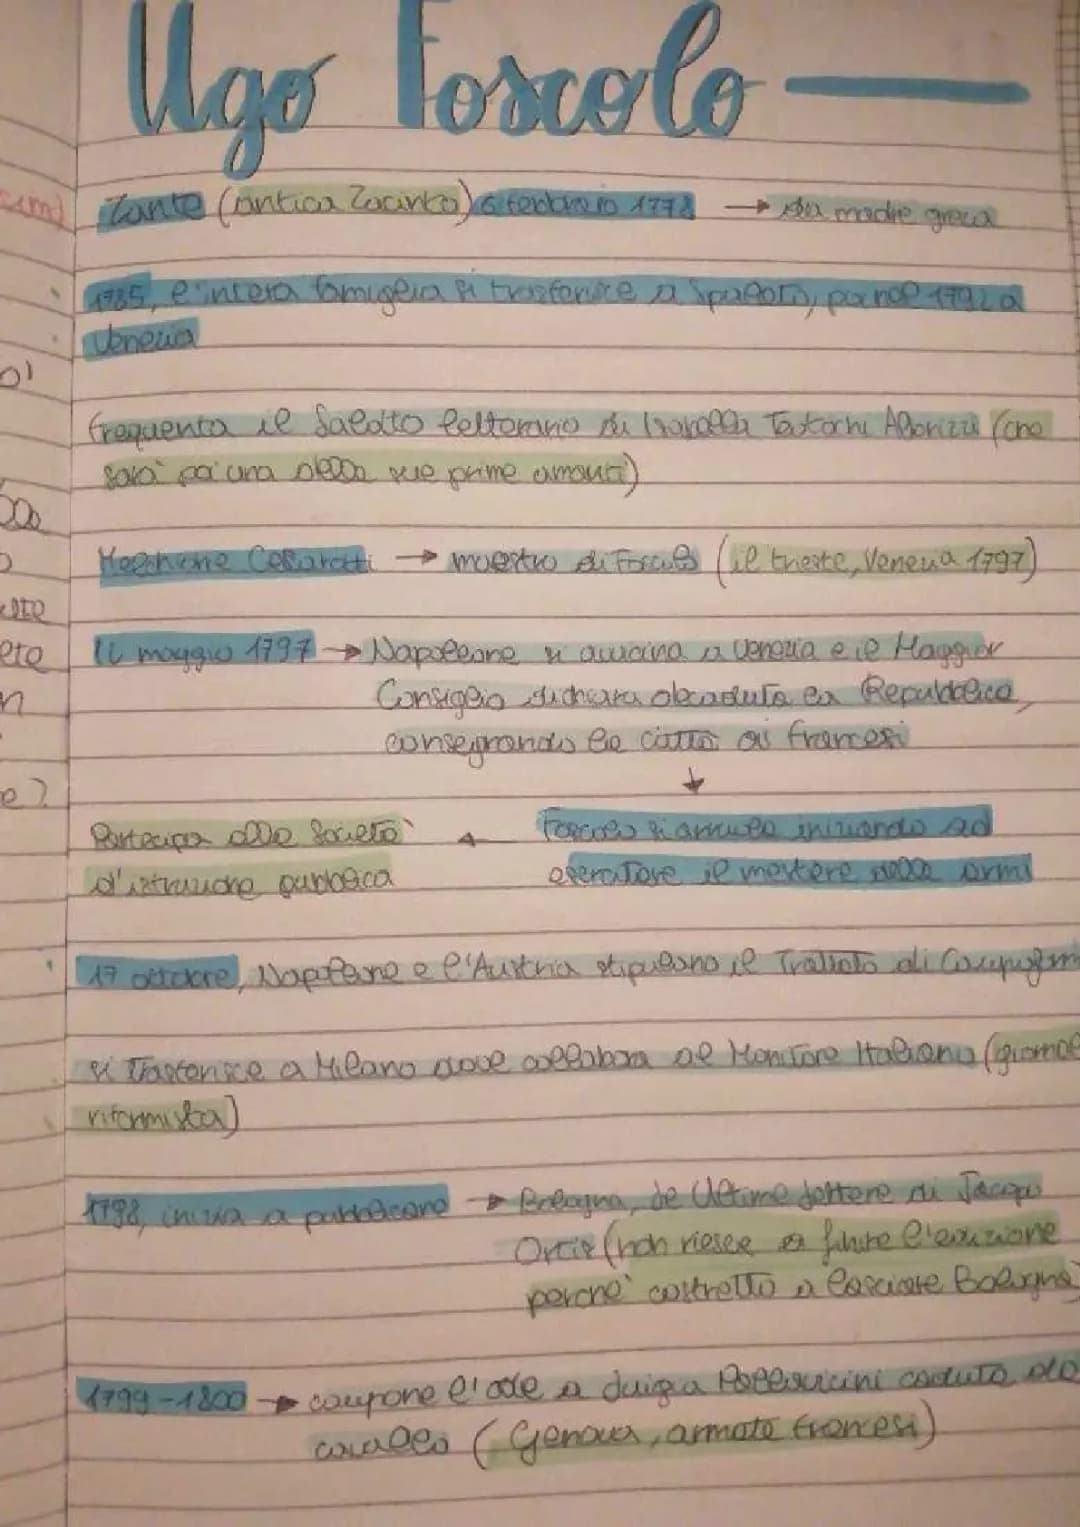 Ugo Foscolo —
Zante (antica Zacinto) 6 febbraio 1778 → da madre greca
1785, l'intera famiglia si trasferisce a Spalato, poi nel 1792 a
Venezia
frequenta il salotto letterario di Isabella Teotochi Albrizzi (che
sarà poi una delle sue prime amanti)
Melchiorre Cesarotti → maestro di Foscolo (il trieste, Venezia 1797)
12 maggio 1797 → Napoleone si avvicina a Venezia e il Maggior
Consiglio dichiara decaduta la Repubblica,
consegnando la città ai francesi
↓
Partecipa alla Società ← Foscolo si arruola iniziando ad
d'istruzione pubblica esercitare il mestiere delle armi
17 ottobre, Napoleone e l'Austria stipulano il Trattato di
si trasferisce a Milano dove collabora al Monitore Italiano (giornale
riformista)
1798, inizia a pubblicare → Bologna, le Ultime lettere di Jacopo
Ortis (non riesce a finire l'edizione
perché costretto a lasciare Bologna)
1799-1800 → compone l'ode a Luigia Pallavicini caduta da
cavallo (Genova, armate francesi)